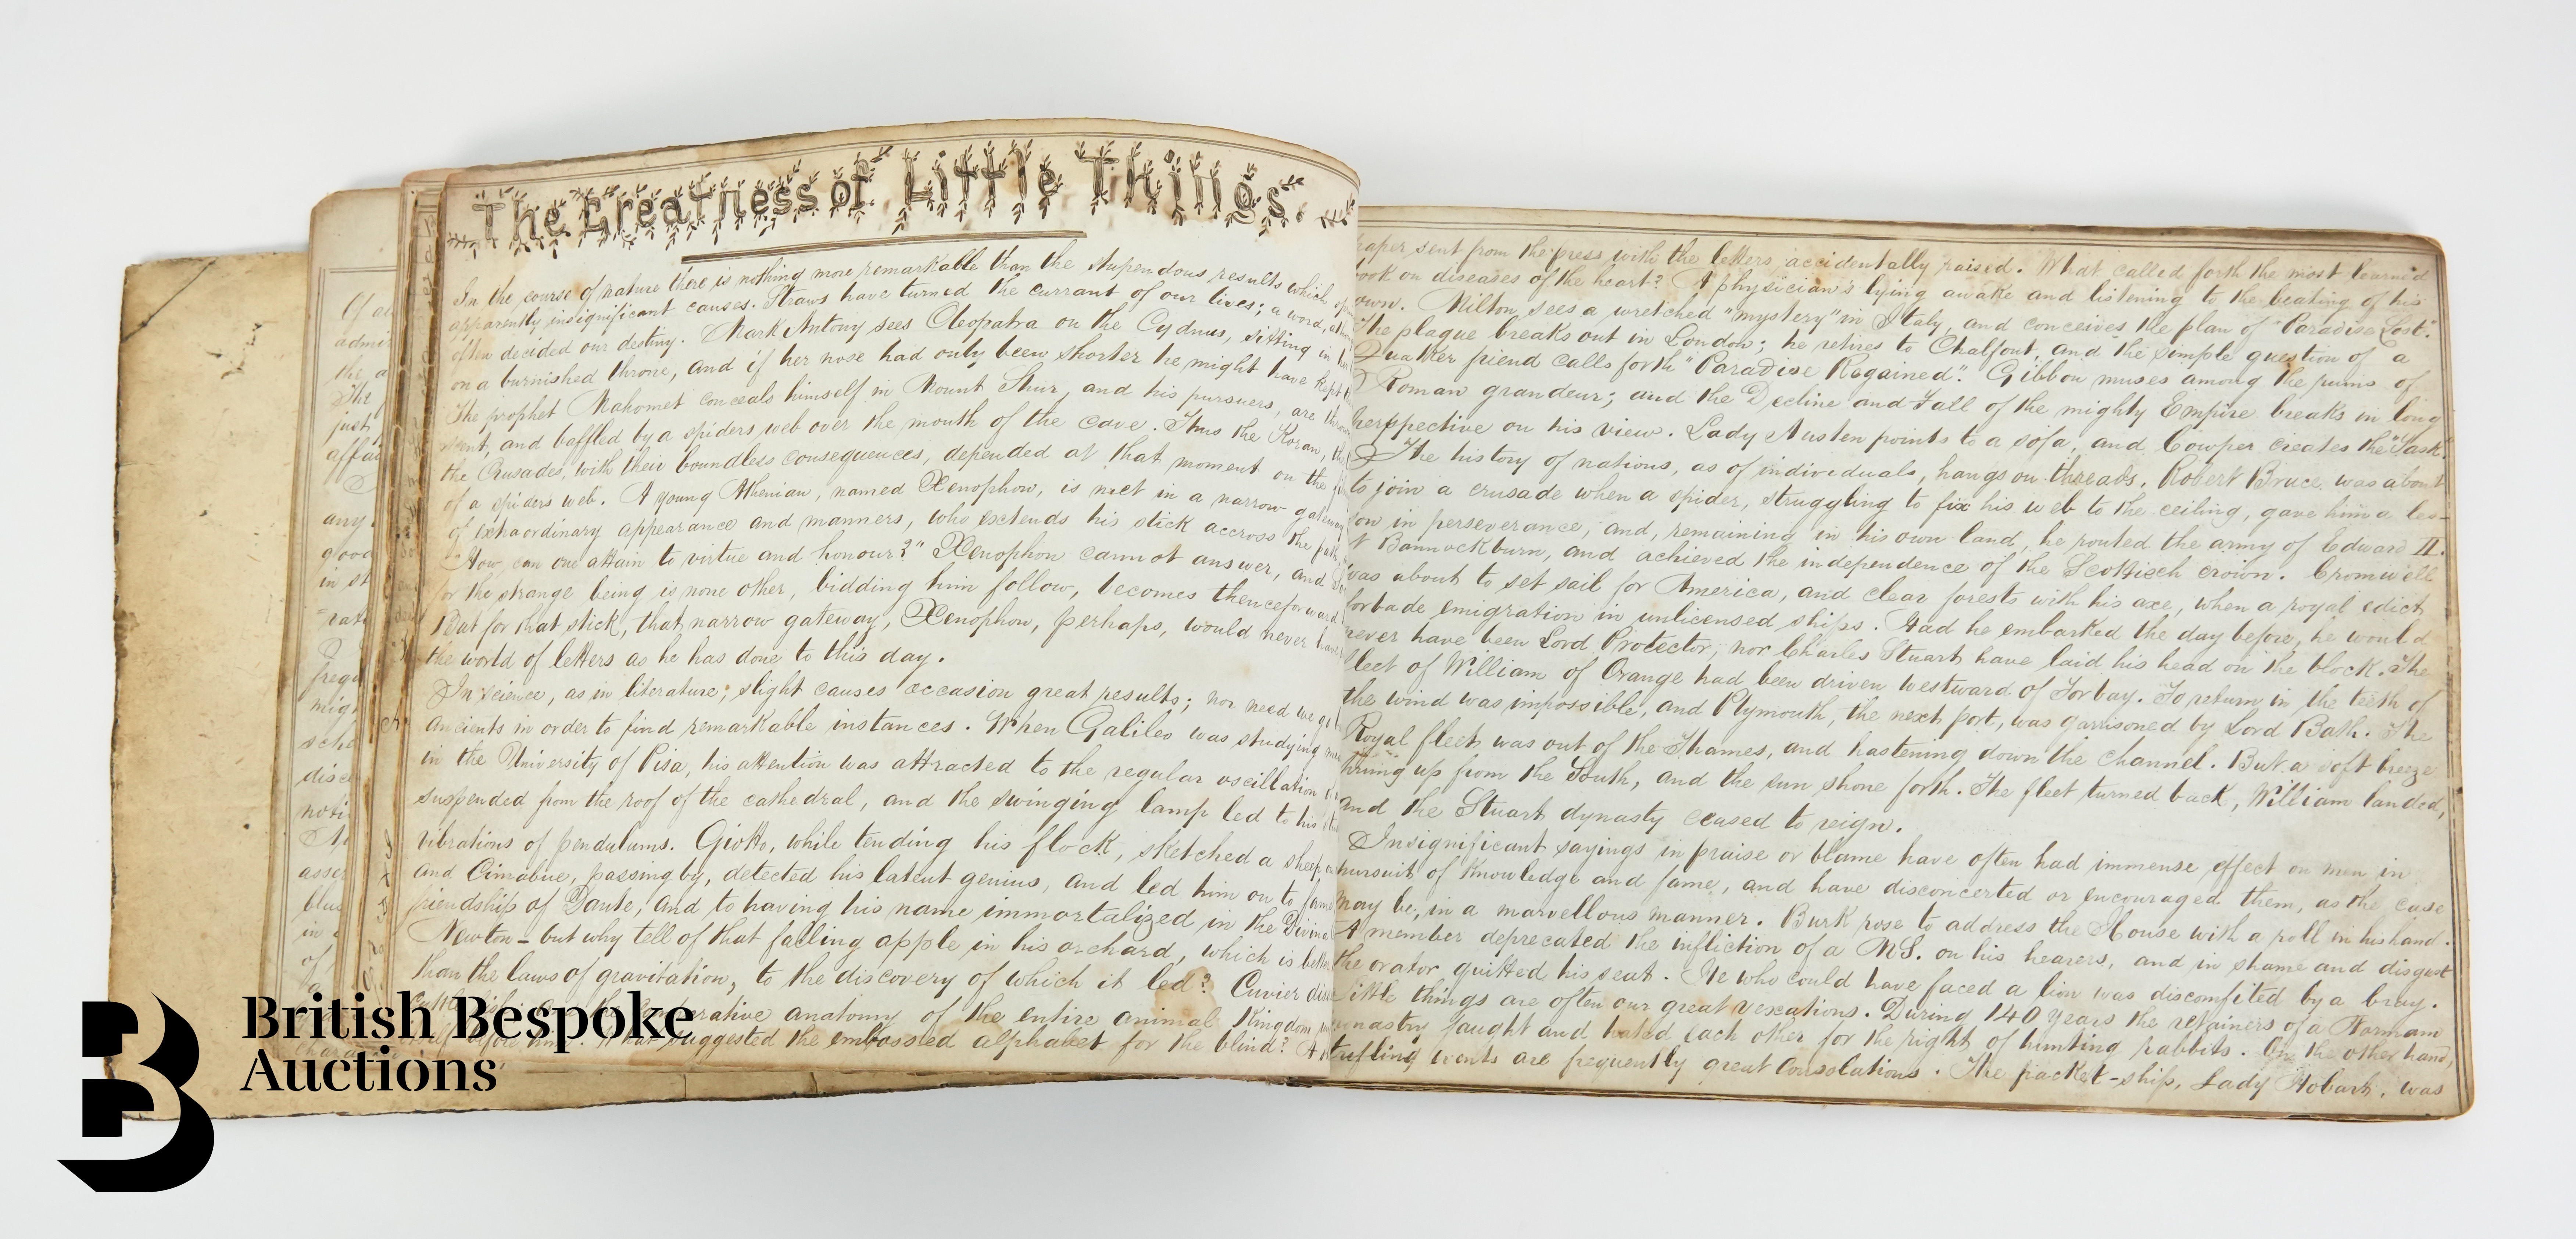 The Greatness of Little Things.
In the course of nature there is nothing more remarkable than the stupendous results which
apparently insignificant causes. Straws have turned the currant of our lives; a word,
often decided our destiny. Mark Antony sees Cleopatra on the Cydnus, sitting in
on a burnished throne, and if her nose had only been shorter he might have kept
The prophet Mahomet conceals himself in Mount Shur, and his pursuers, are
scent, and baffled by a spiders web over the mouth of the cave. Thus the Koran,
the Crusades, with their boundless consequences, depended at that moment on the
of a spiders web. A young Athenian, named Xenophon, is met in a narrow gateway
of extraordinary appearance and manners, who extends his stick accross the path,
"How can one attain to virtue and honour?" Xenophon cannot answer, and
for the strange being is none other, bidding him follow, becomes thenceforward
But for that stick, that narrow gateway, Xenophon, perhaps, would never have
the world of letters as he has done to this day.
In science, as in literature, slight causes occasion great results; nor need we
ancients in order to find remarkable instances. When Galileo was studying
in the University of Pisa, his attention was attracted to the regular oscillation
suspended from the roof of the cathedral, and the swinging lamp led to his
vibrations of pendulums. Giotto, while tending his flock, sketched a sheep,
and Cimabue, passing by, detected his latent genius, and led him on to fame
friendship of Dante, and to having his name immortalized in the Divine
Newton - but why tell of that falling apple in his orchard, which is better
than the laws of gravitation, to the discovery of which it led? Cuvier
anatomy of the entire animal Kingdom
suggested the embossed alphabet for the blind? A
paper sent from the press with the letters accidentally raised. What called forth the most learned
book on diseases of the heart? A physician's lying awake and listening to the beating of his
own. Milton sees a wretched "mystery" in Italy, and conceives the plan of "Paradise Lost."
The plague breaks out in London; he retires to Chalfont, and the simple question of a
Quaker friend calls forth "Paradise Regained". Gibbon muses among the ruins of
Roman grandeur; and the Decline and Fall of the mighty Empire breaks in long
perspective on his view. Lady Austen points to a sofa, and Cowper creates the "Task."
The history of nations, as of individuals, hangs on threads. Robert Bruce was about
to join a crusade when a spider, struggling to fix his web to the ceiling, gave him a les-
son in perseverance; and, remaining in his own land, he routed the army of Edward II.
at Bannockburn, and achieved the independence of the Scottisch crown. Cromwell
was about to set sail for America, and clear forests with his axe, when a royal edict
forbade emigration in unlicensed ships. Had he embarked the day before, he would
never have been Lord Protector, nor Charles Stuart have laid his head on the block. The
fleet of William of Orange had been driven westward of Torbay. To return in the teeth of
the wind was impossible, and Plymouth, the next port, was garrisoned by Lord Bath. The
Royal fleet was out of the Thames, and hastening down the Channel. But a soft breeze
sprung up from the South, and the sun shone forth. The fleet turned back, William landed,
and the Stuart dynasty ceased to reign.
Insignificant sayings in praise or blame have often had immense effect on men in
pursuit of Knowledge and fame, and have disconcerted or encouraged them, as the case
may be, in a marvellous manner. Burk rose to address the House with a roll in his hand.
A member deprecated the infliction of a MS. on his hearers, and in shame and disgust
the orator quitted his seat. He who could have faced a lion was discomfited by a bray.
Little things are often our great vexations. During 140 years the retainers of a Norman
fought and hated each other for the right of hunting rabbits. On the other hand,
trifling events are frequently great Consolations. The packet-ship, Lady Hobart, was
British Bespoke
Auctions